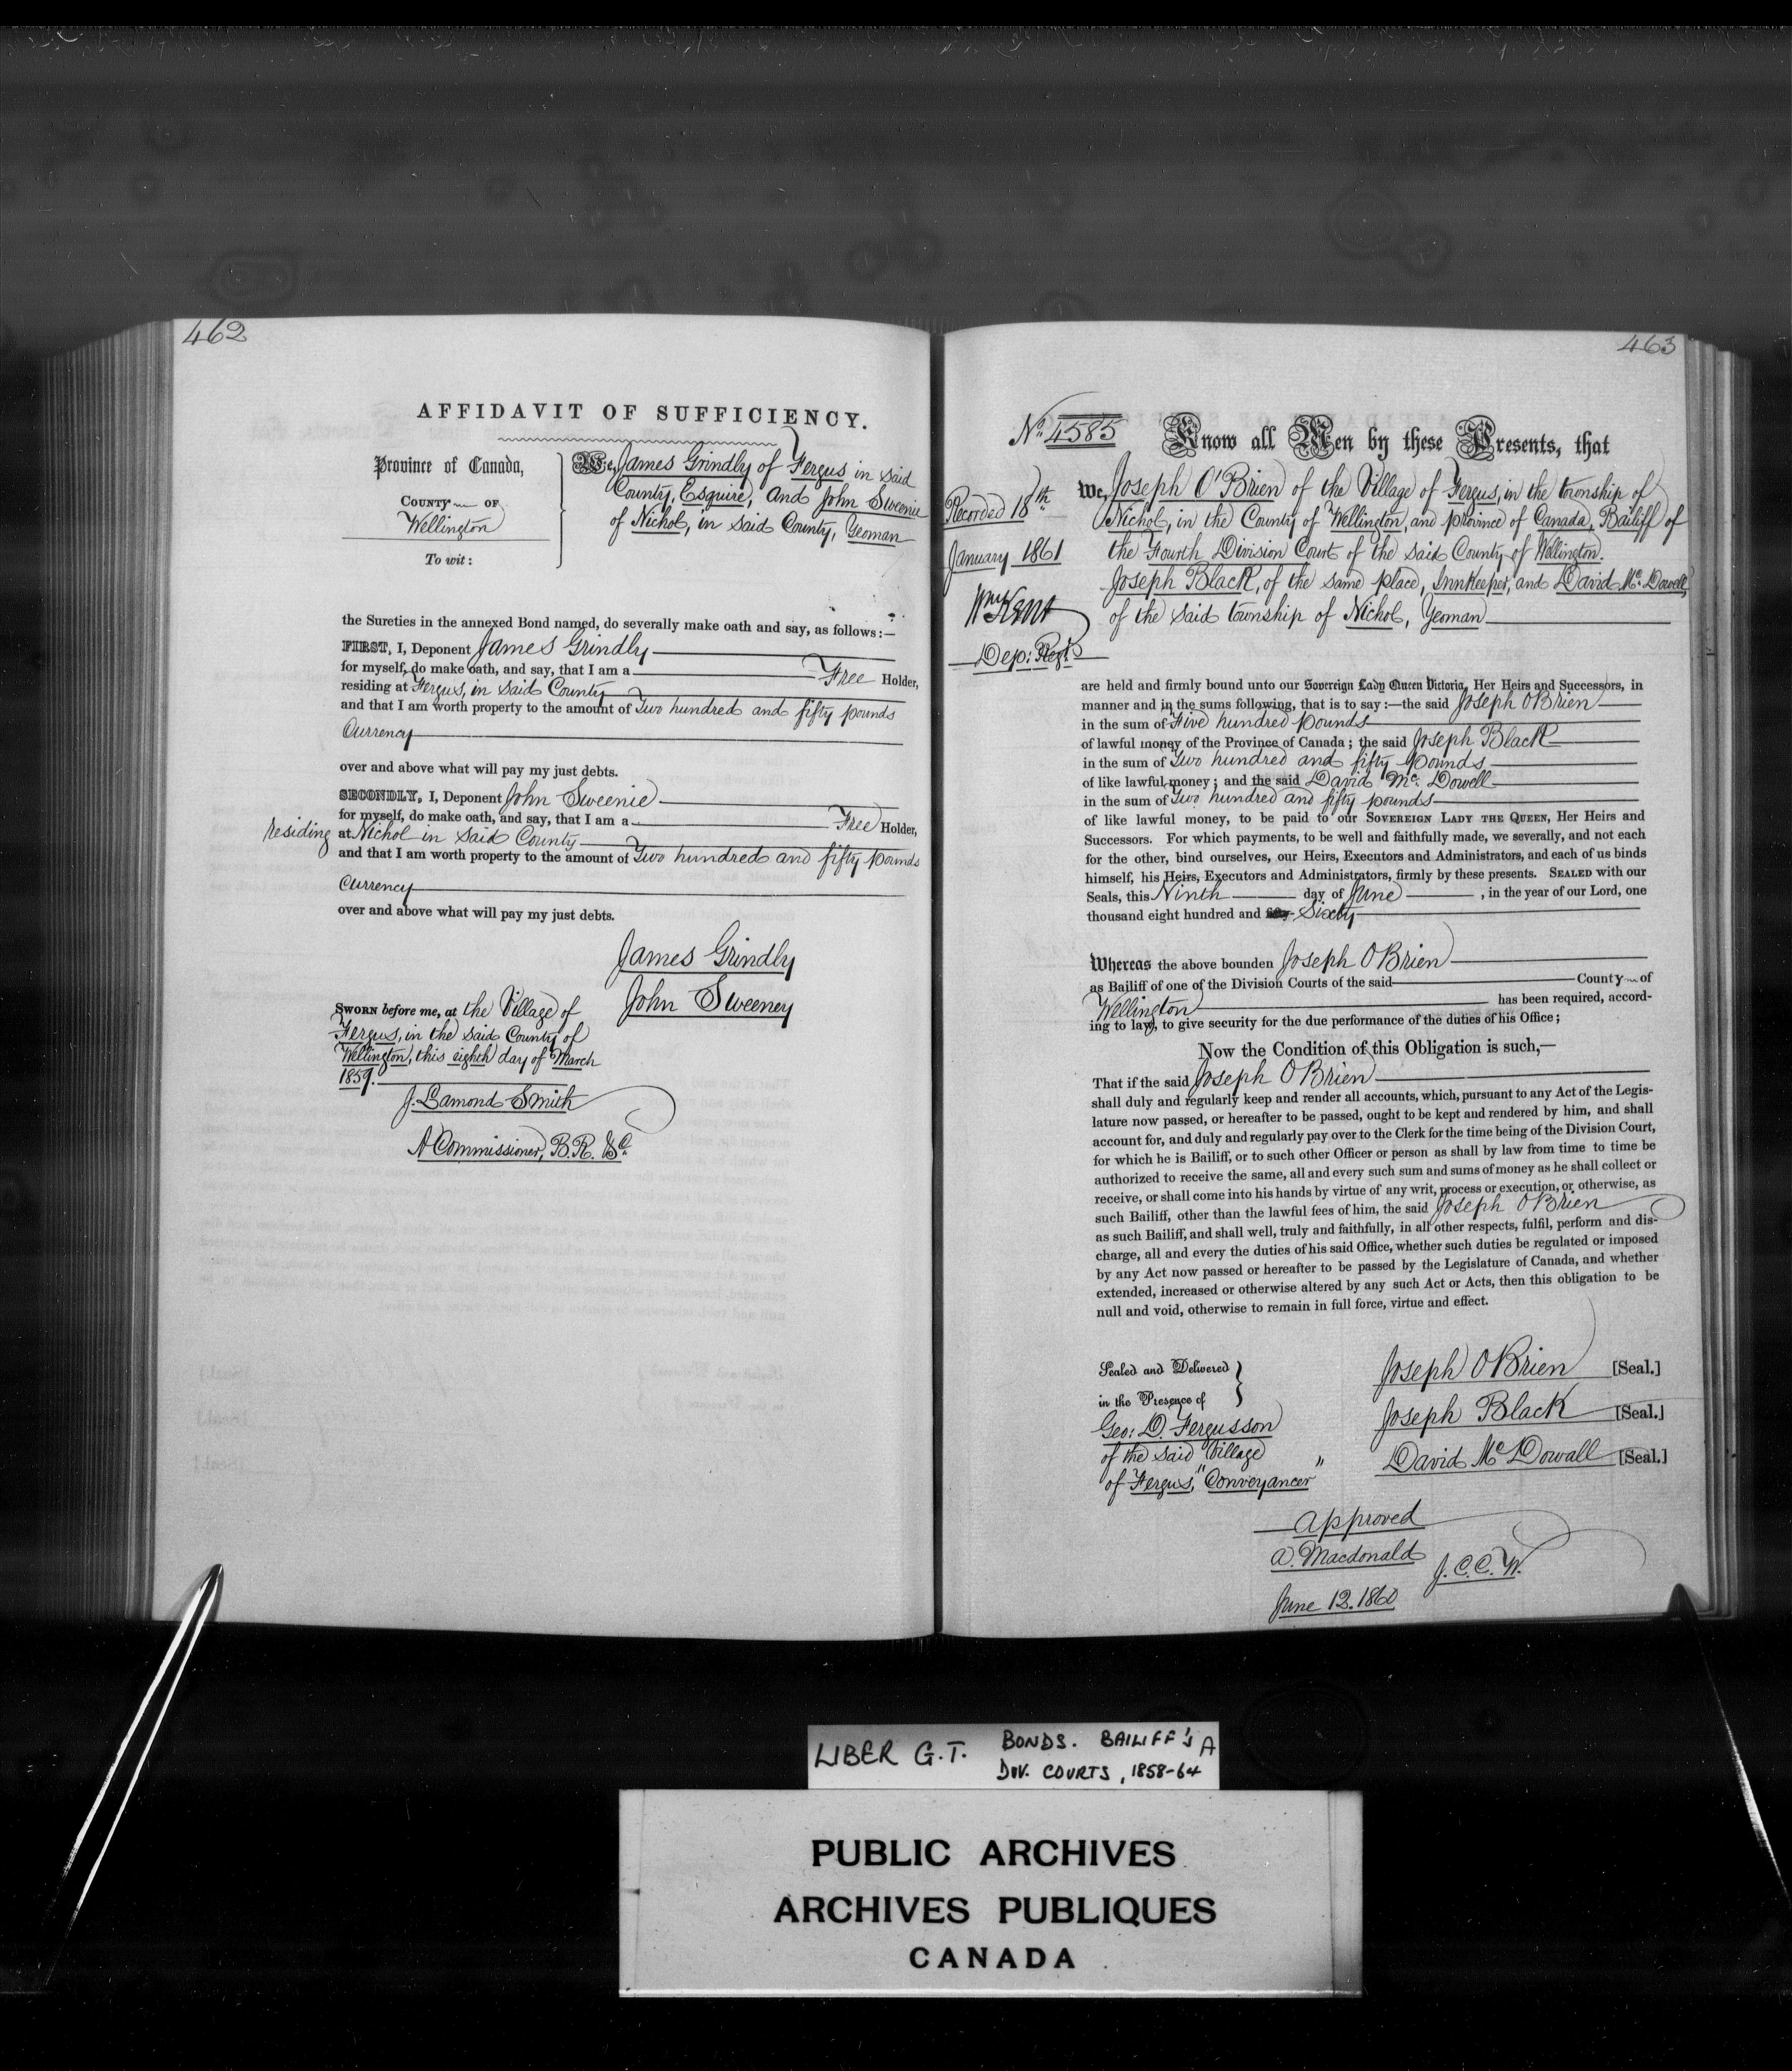 462
AFFIDAVIT OF SUFFICIENCY.
Province of Canada,
COUNTY OF
Wellington
To wit:
We, James Grindly of Fergus in said
County, Esquire, and John Sweenie
of Nichol, in said County, Yeoman
the Sureties in the annexed Bond named, do severally make oath and say, as follows:—
FIRST, I, Deponent James Grindly
for myself, do make oath, and say, that I am a Free Holder,
residing at Fergus, in said County
and that I am worth property to the amount of Two hundred and fifty pounds
Currency
over and above what will pay my just debts.
SECONDLY, I, Deponent John Sweenie
for myself, do make oath, and say, that I am a Free Holder,
residing at Nichol in said County
and that I am worth property to the amount of Two hundred and fifty pounds
Currency
over and above what will pay my just debts.
James Grindly
John Sweeney
SWORN before me, at the Village of
Fergus, in the said County of
Wellington, this eighth day of March
1859.
J. Lamond Smith
A Commissioner, B.R. &c.
463
No. 4585
Recorded 18th
January 1861
Wm Kent
Dep: Regr.
Know all Men by these Presents, that
We, Joseph O'Brien of the Village of Fergus, in the township of
Nichol, in the County of Wellington, and province of Canada, Bailiff of
the Fourth Division Court of the said County of Wellington.
Joseph Black, of the same place, Innkeeper, and David Mc. Dowell,
of the said township of Nichol, Yeoman
are held and firmly bound unto our Sovereign Lady Queen Victoria, Her Heirs and Successors, in
manner and in the sums following, that is to say:—the said Joseph OBrien
in the sum of Five hundred pounds
of lawful money of the Province of Canada; the said Joseph Black
in the sum of Two hundred and fifty pounds
of like lawful money; and the said David Mc. Dowell
in the sum of Two hundred and fifty pounds
of like lawful money, to be paid to our SOVEREIGN LADY THE QUEEN, Her Heirs and
Successors. For which payments, to be well and faithfully made, we severally, and not each
for the other, bind ourselves, our Heirs, Executors and Administrators, and each of us binds
himself, his Heirs, Executors and Administrators, firmly by these presents. SEALED with our
Seals, this Ninth day of June, in the year of our Lord, one
thousand eight hundred and Sixty
Whereas the above bounden Joseph OBrien
as Bailiff of one of the Division Courts of the said County of
Wellington has been required, accord-
ing to law, to give security for the due performance of the duties of his Office;
Now the Condition of this Obligation is such,—
That if the said Joseph OBrien
shall duly and regularly keep and render all accounts, which, pursuant to any Act of the Legis-
lature now passed, or hereafter to be passed, ought to be kept and rendered by him, and shall
account for, and duly and regularly pay over to the Clerk for the time being of the Division Court,
for which he is Bailiff, or to such other Officer or person as shall by law from time to time be
authorized to receive the same, all and every such sum and sums of money as he shall collect or
receive, or shall come into his hands by virtue of any writ, process or execution, or otherwise, as
such Bailiff, other than the lawful fees of him, the said Joseph OBrien
as such Bailiff, and shall well, truly and faithfully, in all other respects, fulfil, perform and dis-
charge, all and every the duties of his said Office, whether such duties be regulated or imposed
by any Act now passed or hereafter to be passed by the Legislature of Canada, and whether
extended, increased or otherwise altered by any such Act or Acts, then this obligation to be
null and void, otherwise to remain in full force, virtue and effect.
Sealed and Delivered
in the Presence of
Geo: D. Fergusson
of the said Village
of Fergus, "Conveyancer"
Joseph OBrien [Seal.]
Joseph Black [Seal.]
David Mc Dowall [Seal.]
Approved
A. Macdonald J.C.C.W.
June 12. 1860
LIBER G.T. BONDS. BAILIFF'S A
DIV. COURTS, 1858-64
PUBLIC ARCHIVES
ARCHIVES PUBLIQUES
CANADA